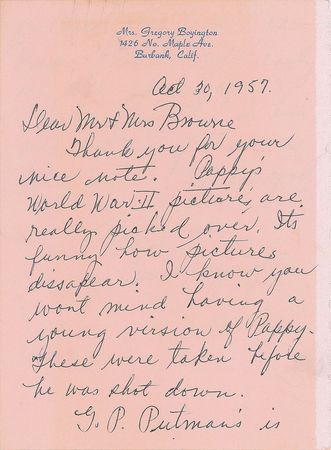 Mrs. Gregory Boyington
1426 No. Maple Ave.
Burbank, Calif.
Oct 30, 1957.
Dear Mr & Mrs Browne
Thank you for your
nice note. Pappy's
World War II pictures are
really picked over. Its
funny how pictures
dissapear. I know you
wont mind having a
young virsion of Pappy.
These were taken before
he was shot down.
G. P. Putman's is